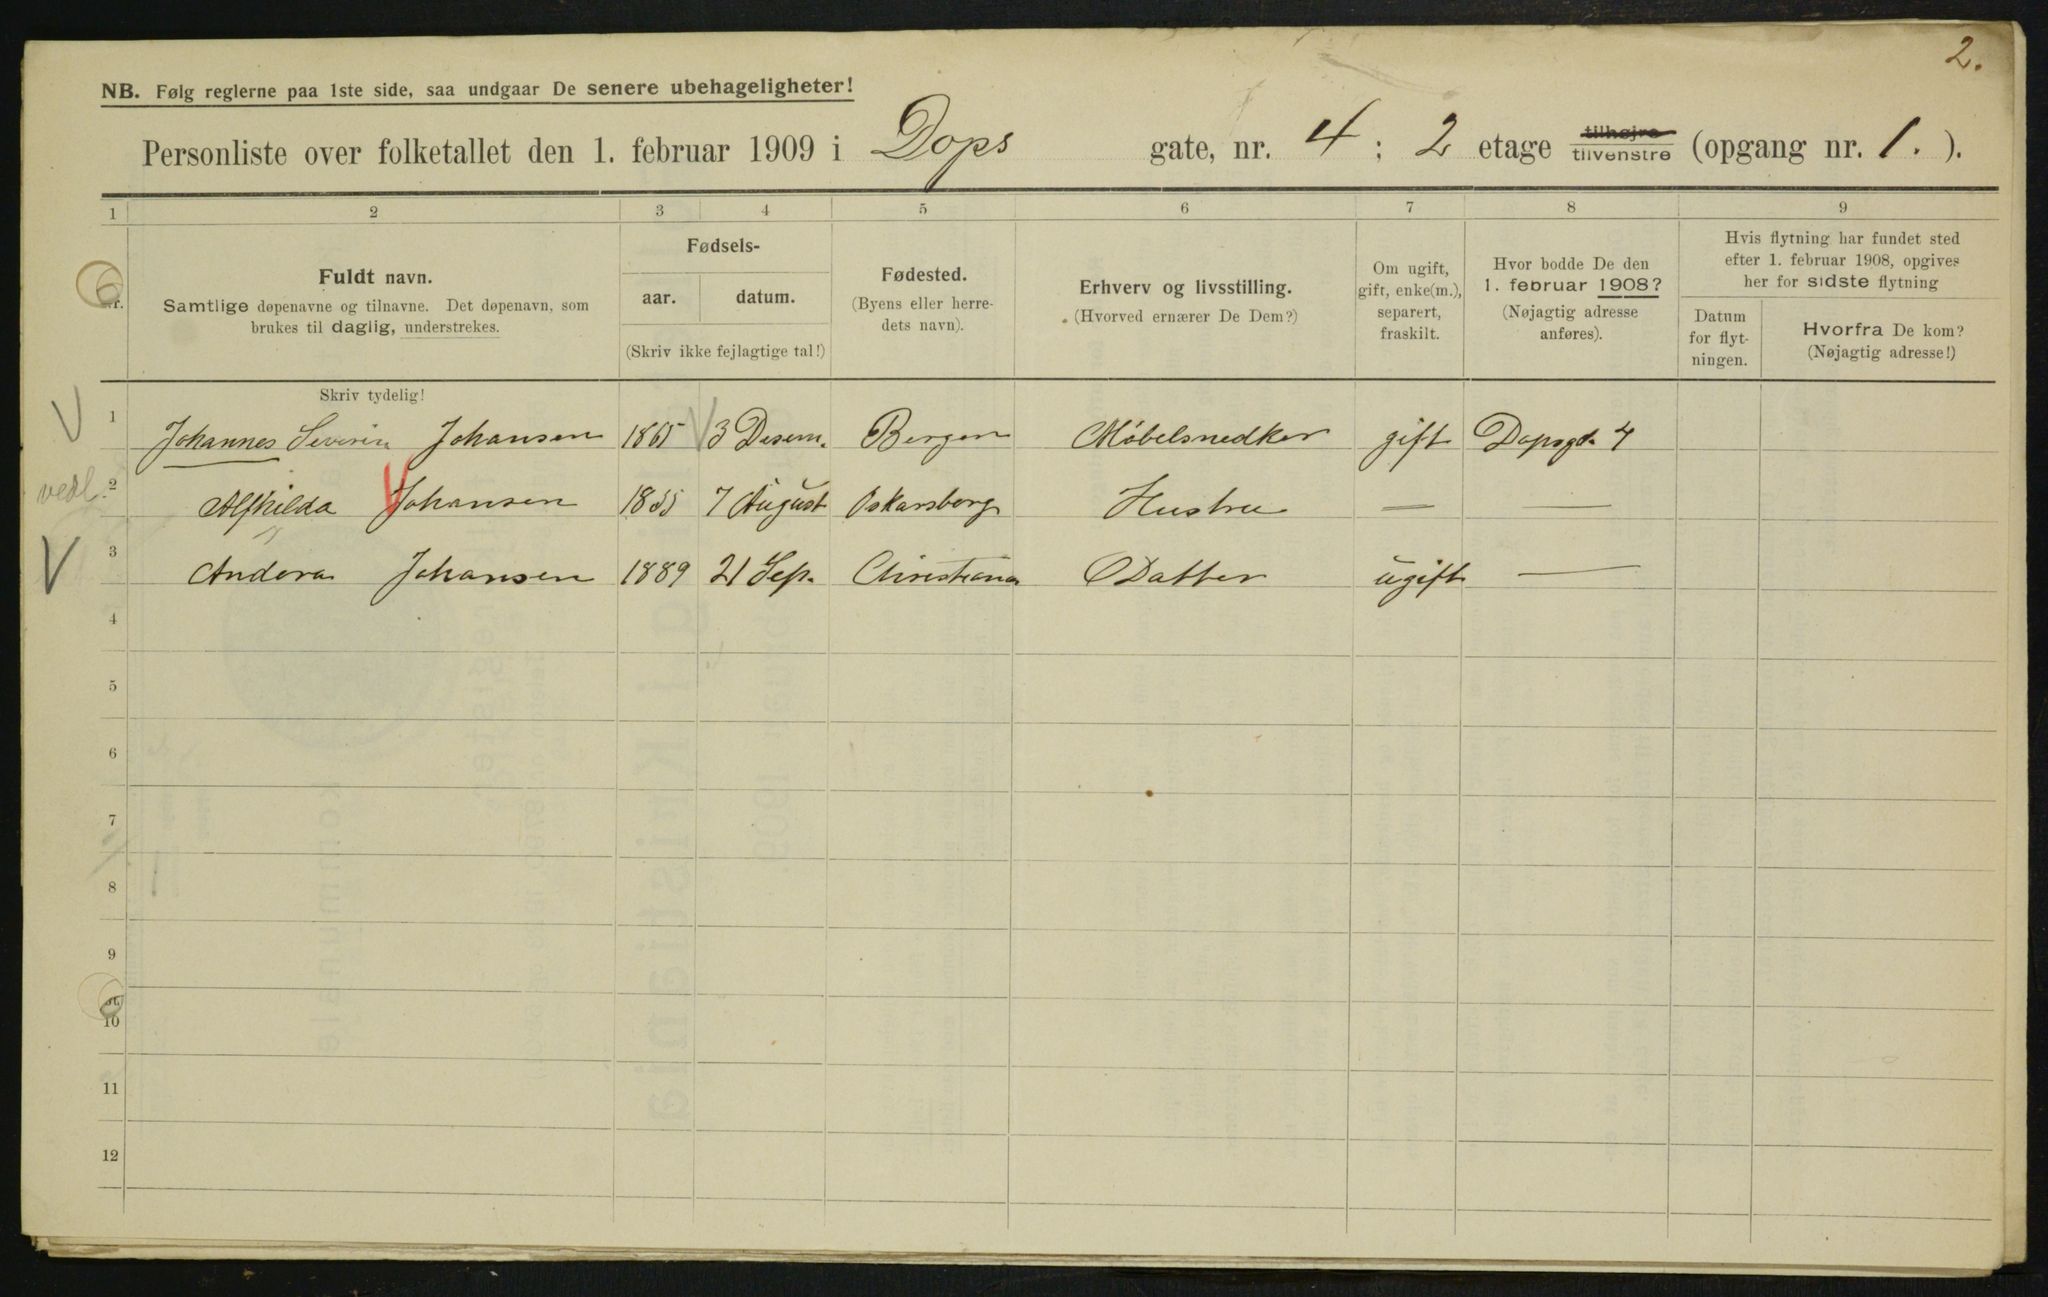 2.
NB. Følg reglerne paa 1ste side, saa undgaar De senere ubehageligheter!
Personliste over folketallet den 1. februar 1909 i Dops gate, nr. 4 ; 2 etage tilhøjre tilvenstre (opgang nr. 1. ).
1 2 3 4 5 6 7 8 9
Nr.
Fuldt navn.
Samtlige døpenavne og tilnavne. Det døpenavn, som
brukes til daglig, understrekes.
Fødsels-
aar. datum.
(Skriv ikke fejlagtige tal!)
Fødested.
(Byens eller herre-
dets navn).
Erhverv og livsstilling.
(Hvorved ernærer De Dem?)
Om ugift,
gift, enke(m.),
separert,
fraskilt.
Hvor bodde De den
1. februar 1908?
(Nøjagtig adresse
anføres).
Hvis flytning har fundet sted
efter 1. februar 1908, opgives
her for sidste flytning
Datum
for flyt-
ningen.
Hvorfra De kom?
(Nøjagtig adresse!)
Skriv tydelig!
1 Johannes Severin Johansen 1865 3 Desem. Bergen Møbelsnedker gift Dopsgd. 4
vedl. 2 Alfhilda Johansen 1855 7 August Oskarsborg Hustru — —
3 Andora Johansen 1889 21 Sep. Christiania Datter ugift —
4
5
6
7
8
9
10
11
12